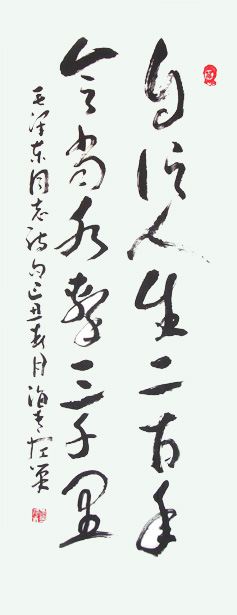 自信人生二百年
会当水擊三千里
毛泽东同志诗句己丑春月